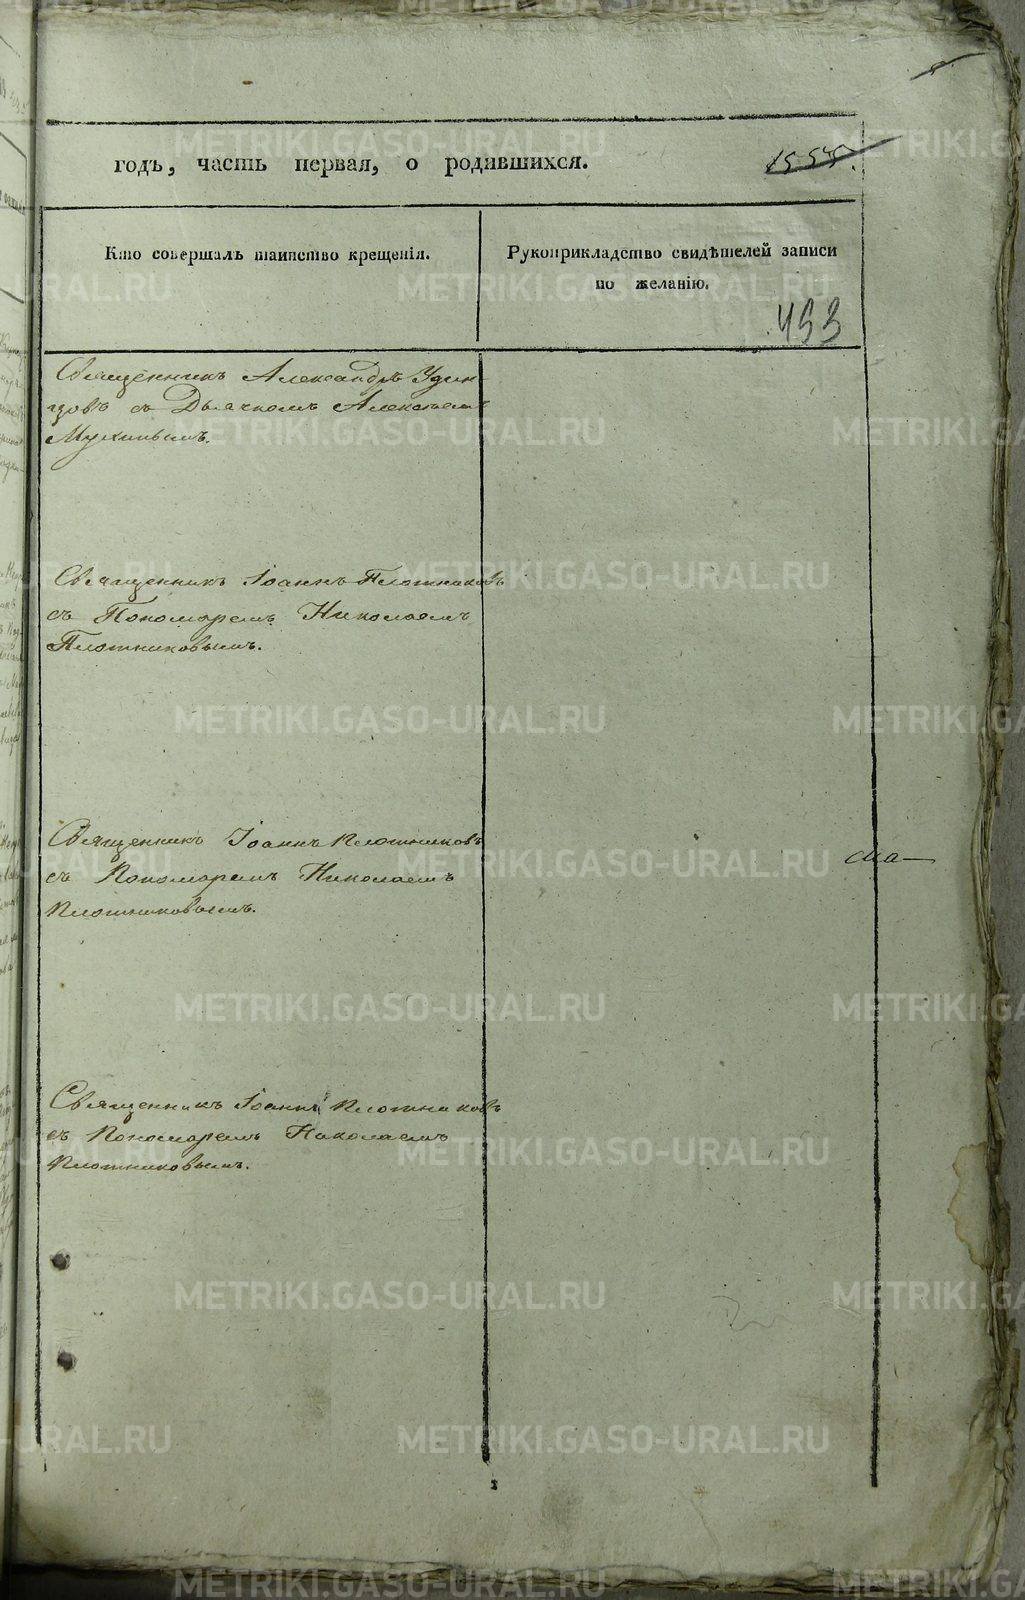 годъ, часть первая, о родившихся.
Кто совершалъ таинство крещенія.
Рукоприкладство свидѣтелей записи
по желанію.
493
Священникъ Александръ Удин-
цовъ съ Дьячкомъ Алексѣемъ
Мухинымъ.
Священникъ Іоаннъ Плотниковъ
съ Пономаремъ Николаемъ
Плотниковымъ.
Священникъ Іоаннъ Плотниковъ
съ Пономаремъ Николаемъ
Плотниковымъ.
Священникъ Іоаннъ Плотниковъ
съ Пономаремъ Николаемъ
Плотниковымъ.
METRIKI.GASO-URAL.RU